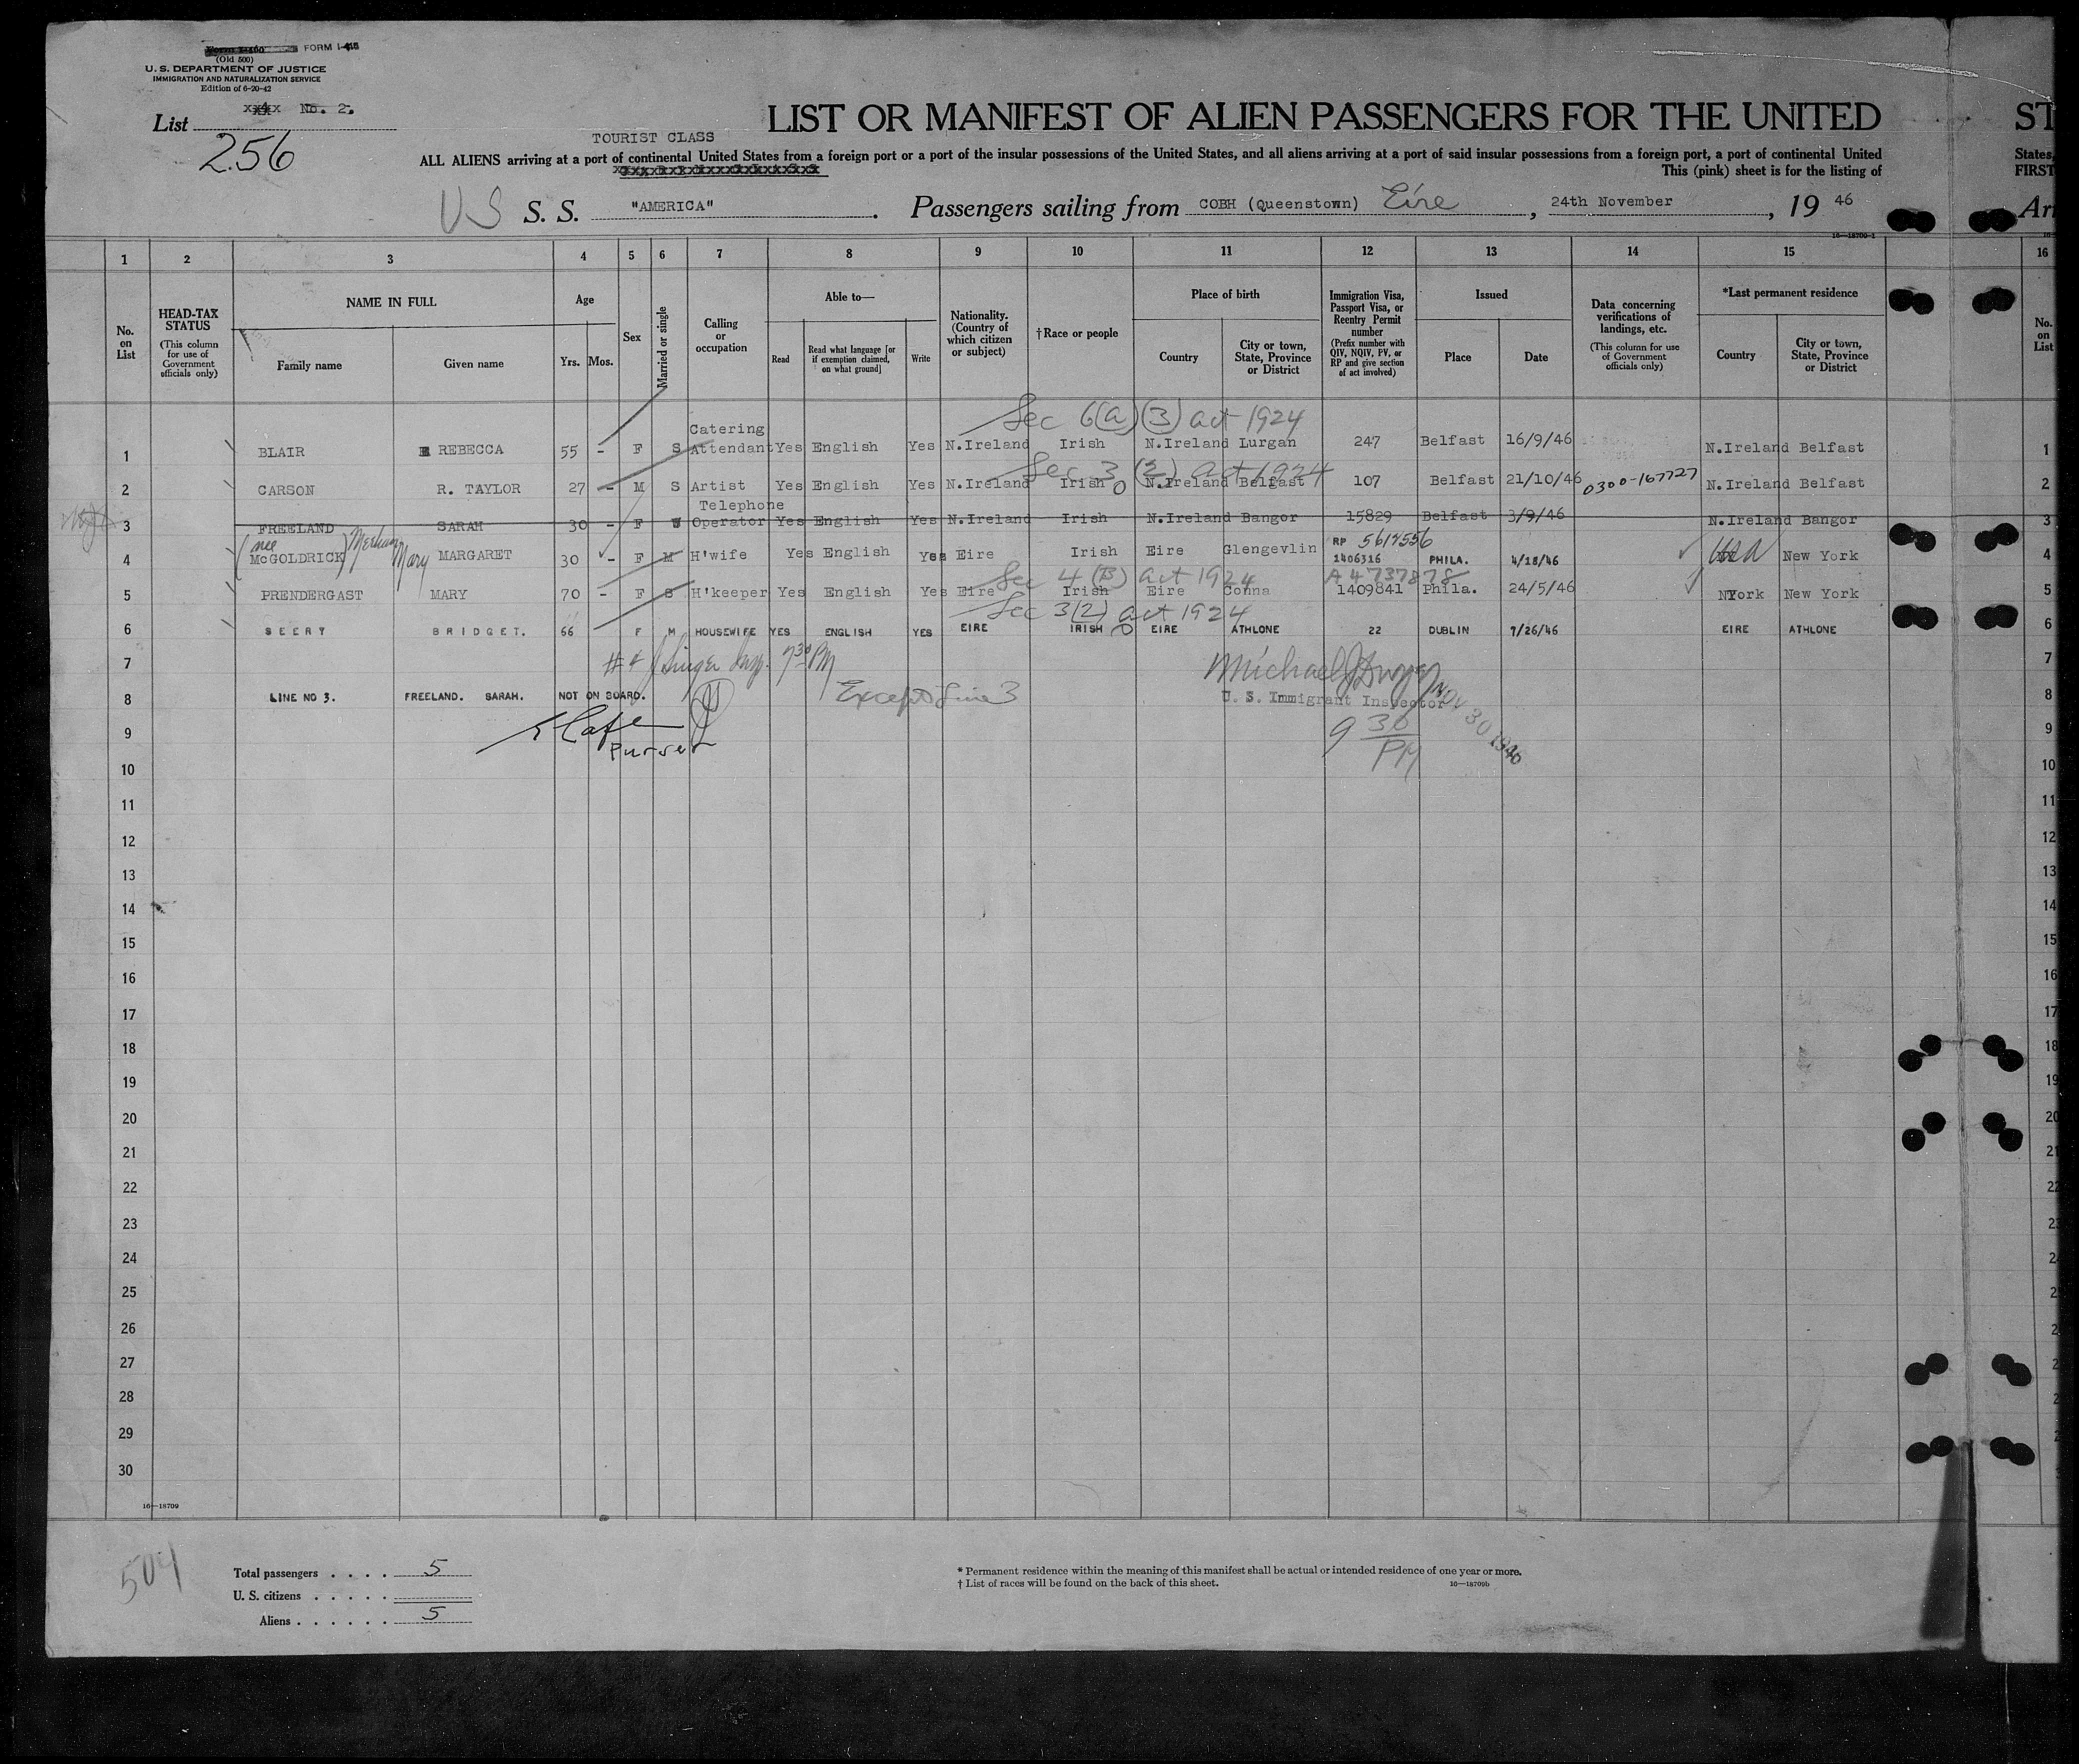 FORM I-415
(Old 500)
U. S. DEPARTMENT OF JUSTICE
IMMIGRATION AND NATURALIZATION SERVICE
Edition of 6-20-42
List xx4x No. 2.
256
LIST OR MANIFEST OF ALIEN PASSENGERS FOR THE UNITED ST
TOURIST CLASS
ALL ALIENS arriving at a port of continental United States from a foreign port or a port of the insular possessions of the United States, and all aliens arriving at a port of said insular possessions from a foreign port, a port of continental United States,
This (pink) sheet is for the listing of FIRST
US S. S. "AMERICA". Passengers sailing from COBH (Queenstown) Eire, 24th November, 19 46
16—18709-1
1 2 3 4 5 6 7 8 9 10 11 12 13 14 15 16
No. on List
HEAD-TAX STATUS (This column for use of Government officials only)
NAME IN FULL
Family name
Given name
Age
Yrs. Mos.
Sex
Married or single
Calling or occupation
Able to—
Read
Read what language [or if exemption claimed, on what ground]
Write
Nationality. (Country of which citizen or subject)
†Race or people
Place of birth
Country
City or town, State, Province or District
Immigration Visa, Passport Visa, or Reentry Permit number (Prefix number with QIV, NQIV, PV, or RP and give section of act involved)
Issued
Place
Date
Data concerning verifications of landings, etc. (This column for use of Government officials only)
*Last permanent residence
Country
City or town, State, Province or District
No. on List
Sec 6(a)(3) act 1924
1 BLAIR REBECCA 55 - F S Catering Attendant Yes English Yes N.Ireland Irish N.Ireland Lurgan 247 Belfast 16/9/46 N.Ireland Belfast 1
Sec 3 (2) act 1924
2 CARSON R. TAYLOR 27 - M S Artist Yes English Yes N.Ireland Irish N.Ireland Belfast 107 Belfast 21/10/46 0300-167727 N.Ireland Belfast 2
3 FREELAND SARAH 30 - F W Telephone Operator Yes English Yes N.Ireland Irish N.Ireland Bangor 15829 Belfast 3/9/46 N.Ireland Bangor 3
4 (nee McGOLDRICK) Meehan Mary MARGARET 30 - F M H'wife Yes English Yes Eire Irish Eire Glengevlin RP 5617556 1406316 PHILA. 4/18/46 USA New York 4
Sec 4 (B) act 1924 A4737878
5 PRENDERGAST MARY 70 - F S H'keeper Yes English Yes Eire Irish Eire Conna 1409841 Phila. 24/5/46 NYork New York 5
Sec 3(2) act 1924
6 SEERY BRIDGET. 66 F M HOUSEWIFE YES ENGLISH YES EIRE IRISH EIRE ATHLONE 22 DUBLIN 9/26/46 EIRE ATHLONE 6
7 7
8 LINE NO 3. FREELAND. SARAH. NOT ON BOARD. Except Line 3 U. S. Immigrant Inspector 8
NOV 30 1946
9 Purser 9 30 PM 9
10 10
11 11
12 12
13 13
14 14
15 15
16 16
17 17
18 18
19 19
20 20
21 21
22 22
23 23
24
25
26
27
28
29
30
16—18709
504
Total passengers . . . . 5
U. S. citizens . . . . .
Aliens . . . . . . 5
* Permanent residence within the meaning of this manifest shall be actual or intended residence of one year or more.
† List of races will be found on the back of this sheet.
16—18709b